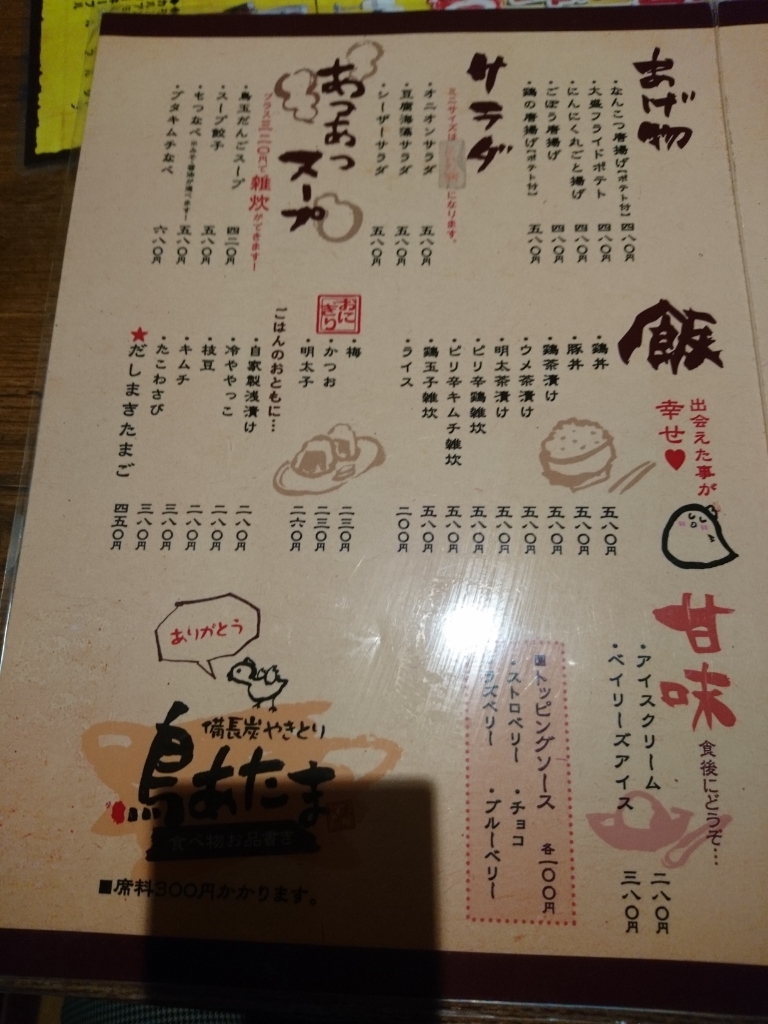 あげ物
・なんこつ唐揚げ【ポテト付】 四八〇円
・大盛フライドポテト 四八〇円
・にんにく丸ごと揚げ 四八〇円
・ごぼう唐揚げ 四八〇円
・鶏の唐揚げ【ポテト付】 五八〇円
サラダ
ミニサイズは になります。
・オニオンサラダ 五八〇円
・豆腐海藻サラダ 五八〇円
・シーザーサラダ 五八〇円
あつあつスープ
プラス三二〇円で雑炊ができます!
・鳥玉だんごスープ 四二〇円
・スープ餃子 五八〇円
・もつなべ 五八〇円
・ブタキムチなべ 六八〇円
飯
出会えた事が
幸せ♥
・鶏丼 五八〇円
・豚丼 五八〇円
・鶏茶漬け 五八〇円
・ウメ茶漬け 五八〇円
・明太茶漬け 五八〇円
・ピリ辛鶏雑炊 五八〇円
・ピリ辛キムチ雑炊 五八〇円
・鶏玉子雑炊 五八〇円
・ライス 二〇〇円
おにぎり
・梅 二三〇円
・かつお 二三〇円
・明太子 二六〇円
ごはんのおともに…
・自家製浅漬け 二八〇円
・冷ややっこ 二八〇円
・枝豆 二八〇円
・キムチ 三八〇円
・たこわさび 三八〇円
★だしまきたまご 四五〇円
甘味
食後にどうぞ…
・アイスクリーム 二八〇円
・ベイリーズアイス 三八〇円
トッピングソース 各一〇〇円
・ストロベリー ・チョコ
ラズベリー ・ブルーベリー
ありがとう
備長炭やきとり
鳥あたま
食べ物お品書き
■席料300円かかります。